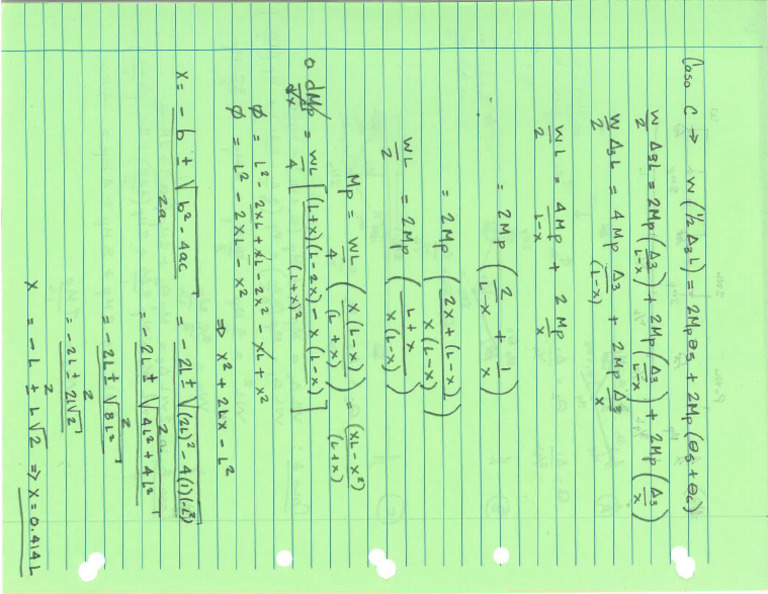 Caso C → W (1/2 Δ3L) = 2Mpθ5 + 2Mp (θ5 + θc)
W/2 Δ3L = 2Mp (Δ3/L-x) + 2Mp (Δ3/L-x) + 2Mp (Δ3/x)
W/2 Δ3L = 4Mp Δ3/(L-x) + 2Mp Δ3/x
WL/2 = 4Mp/L-x + 2Mp/x
= 2Mp (2/L-x + 1/x)
= 2Mp (2x + (L-x)/x(L-x))
WL/2 = 2Mp (L+x/x(L-x))
Mp = WL/4 (x(L-x)/(L+x)) = (xL-x²)/(L+x)
0 dMp/dx = WL/4 [(L+x)(L-2x) - x(L-x)/(L+x)²]
Ø = L² - 2xL + xL - 2x² - xL + x²
Ø = L² - 2xL - x² ⇒ x² + 2Lx - L²
x = -b ± √b² - 4ac/2a = -2L ± √(2L)² - 4(1)(-L²)/2a
= -2L ± √4L² + 4L²/2
= -2L ± √8L²/2
= -2L ± 2L√2/2
x = -L ± L√2 ⇒ x = 0.414L